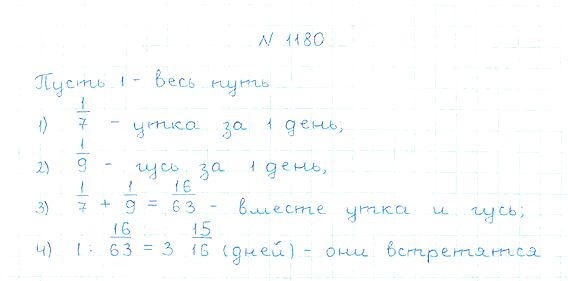 N 1180
Пусть 1 - весь путь
1) 1/7 - утка за 1 день,
2) 1/9 - гусь за 1 день,
3) 1/7 + 1/9 = 16/63 - вместе утка и гусь;
4) 1 : 16/63 = 3 15/16 (дней) - они встретятся